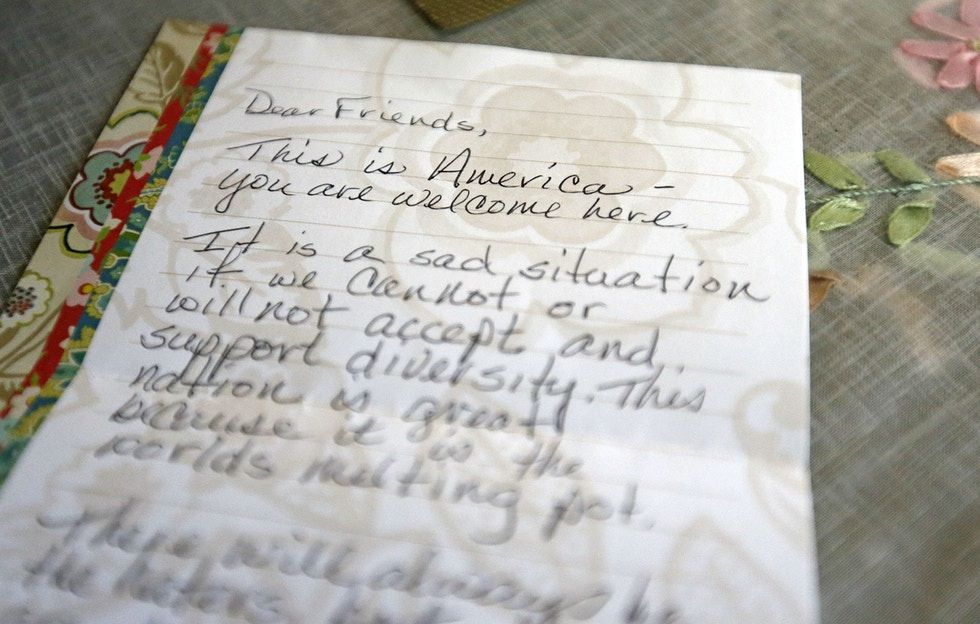 Dear Friends,
This is America -
you are welcome here.
It is a sad situation
if we cannot or
will not accept and
support diversity. This
nation is great
because it is the
worlds melting pot.
There will always be
the haters but